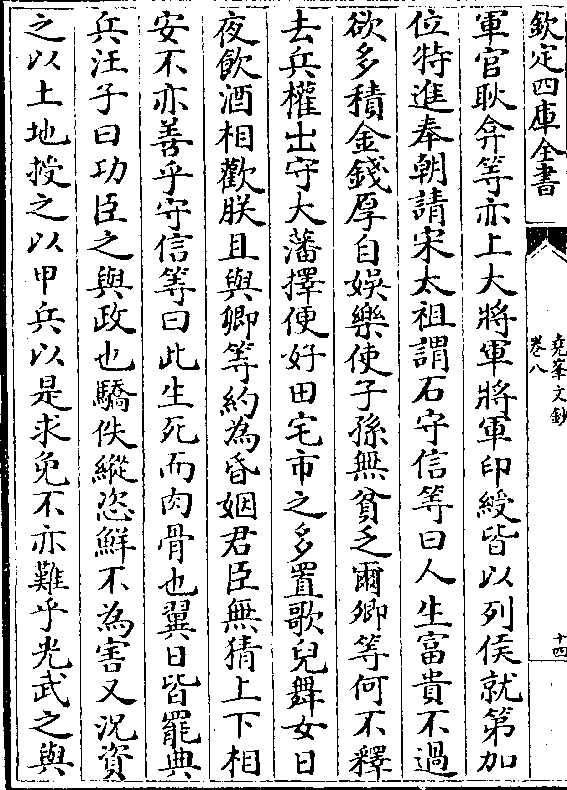 欽定四庫全書
堯峯文鈔
卷八
十四
軍官耿弇等亦上大將軍將軍印綬皆以列侯就第加
位特進奉朝請宋太祖謂石守信等曰人生富貴不過
欲多積金錢厚自娛樂使子孫無貧乏爾卿等何不釋
去兵權出守大藩擇便好田宅市之多置歌兒舞女日
夜飲酒相歡朕且與卿等約為昏姻君臣無猜上下相
安不亦善乎守信等曰此生死而肉骨也翼日皆罷典
兵汪子曰功臣之與政也驕佚縱恣鮮不為害又況資
之以土地授之以甲兵以是求免不亦難乎光武之與